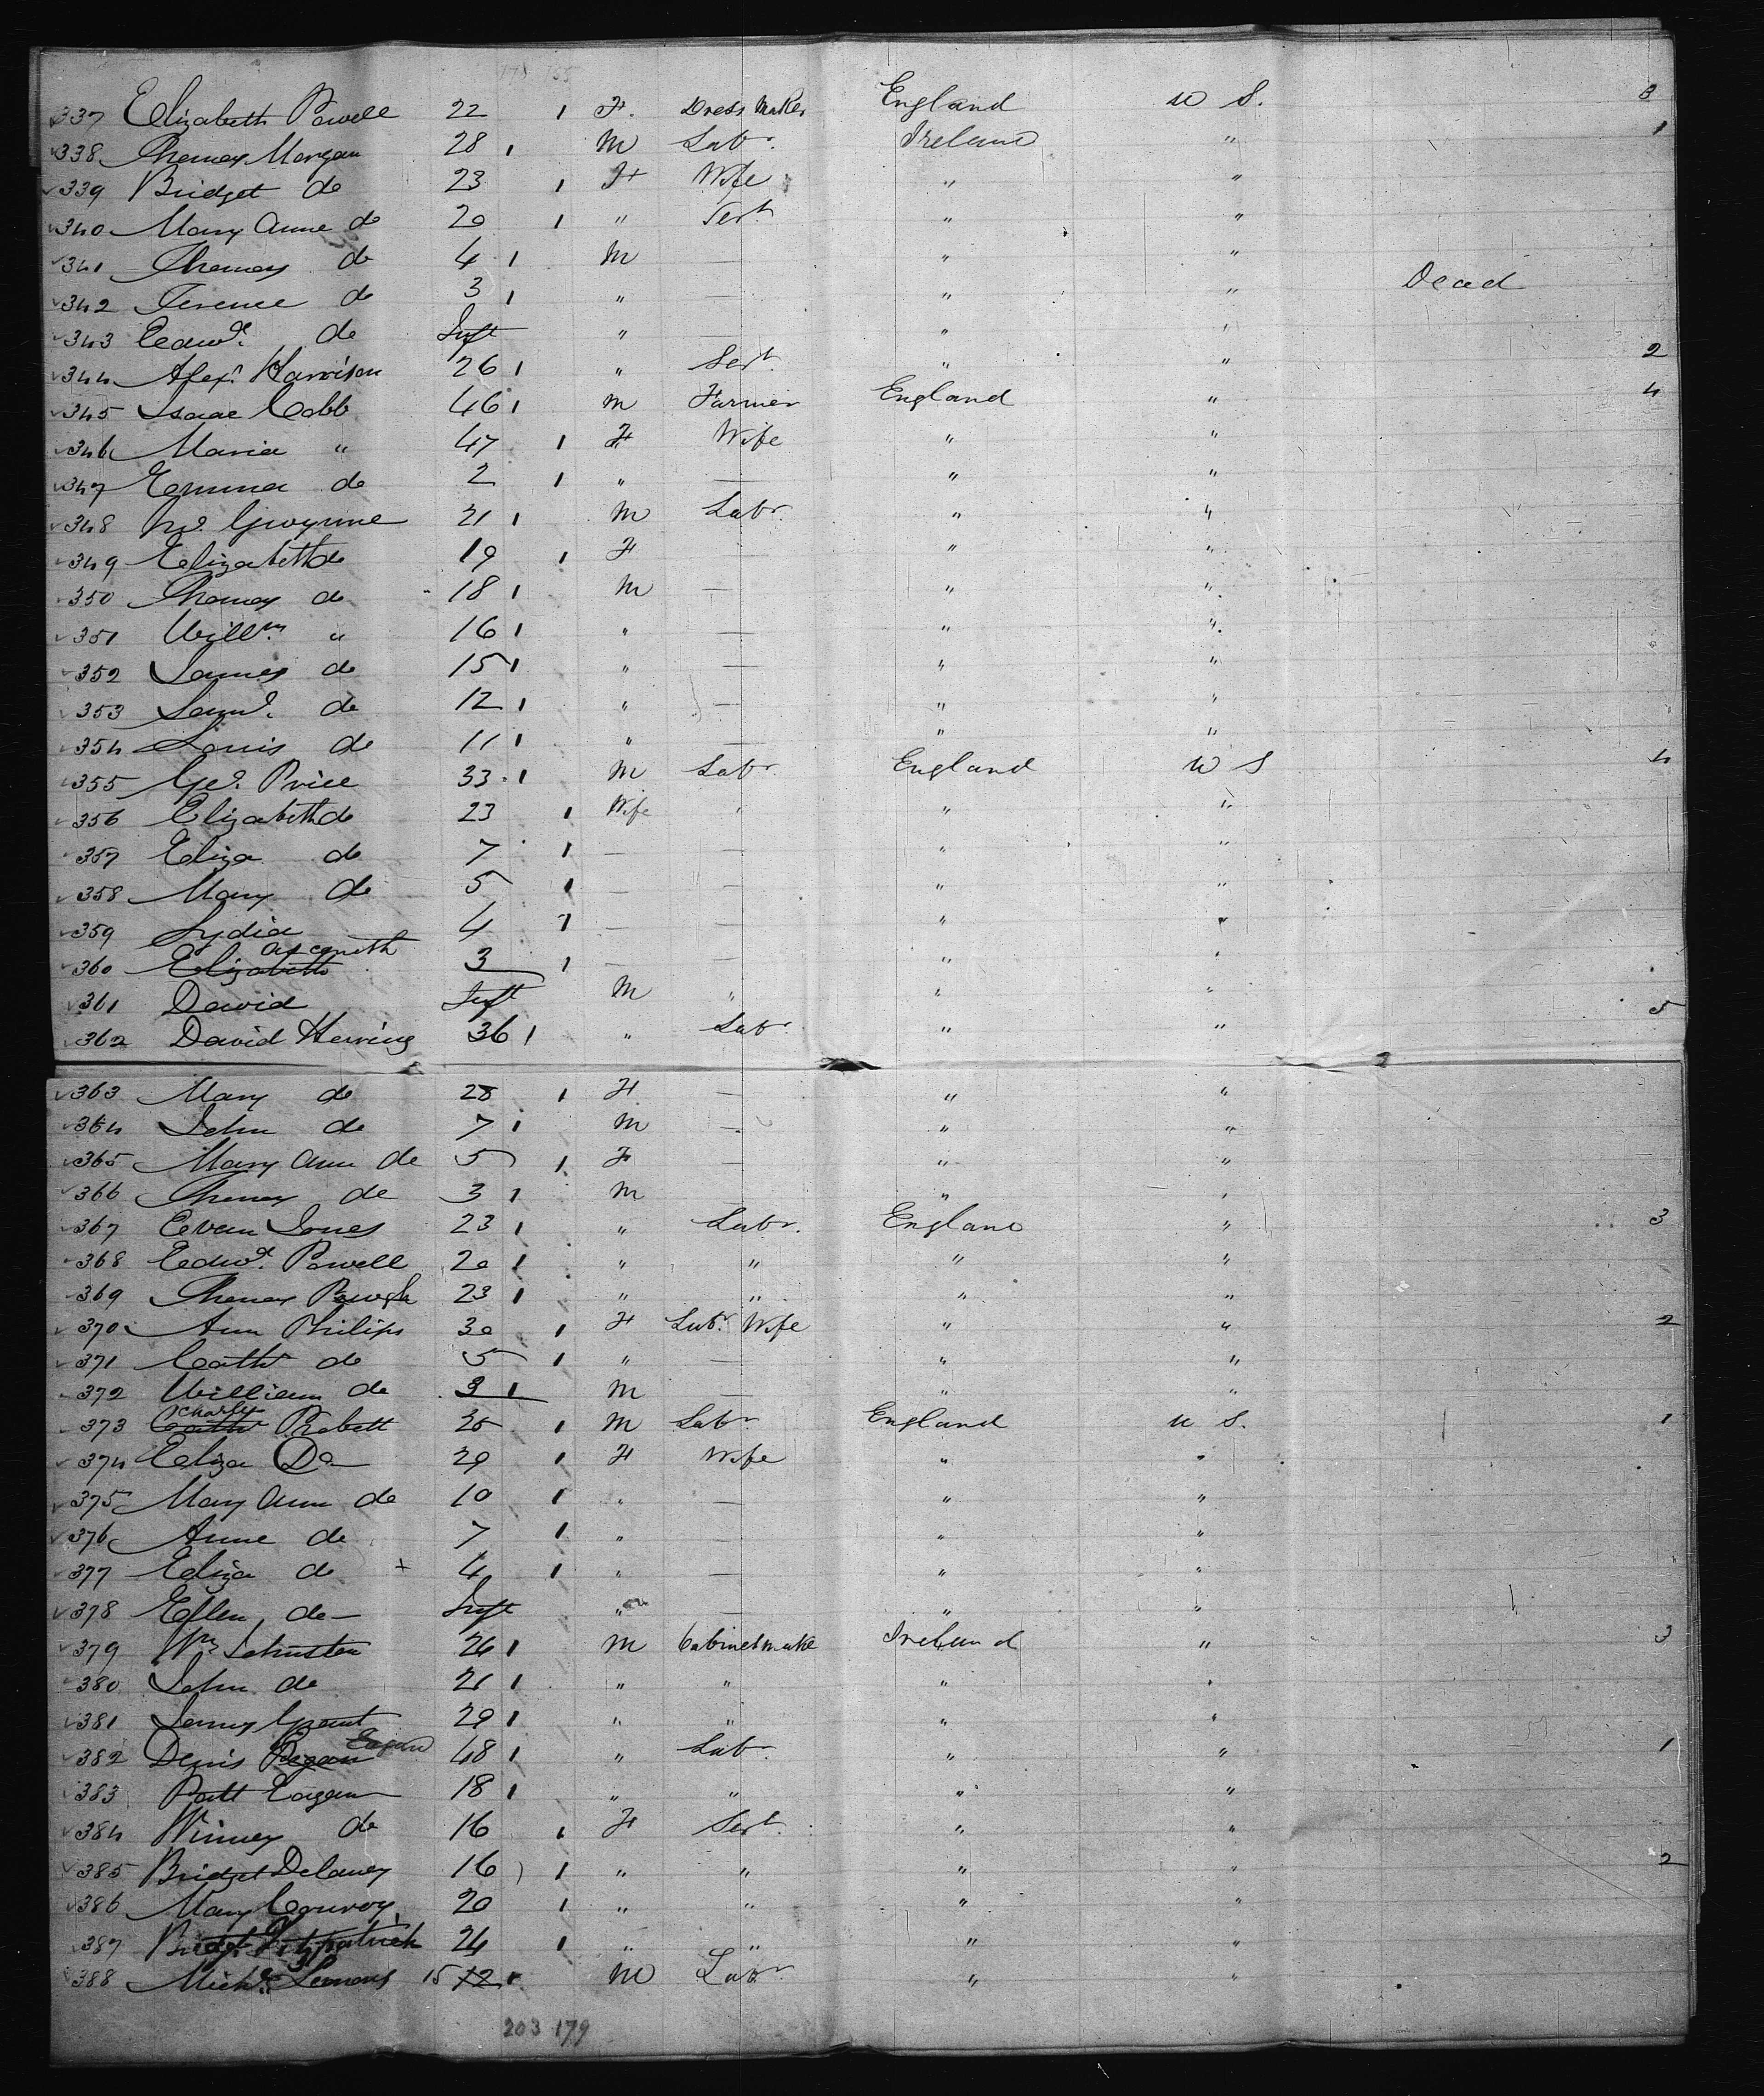 178 155
337 Elizabeth Powell 22 1 F. Dress Maker England U S. 3
338 Thomas Morgan 28 1 M Labr. Ireland " 1
339 Bridget do 23 1 F Wife " "
340 Mary Anne do 20 1 " Sert. " "
341 Thomas do 4 1 M — " "
342 Terence do 3 1 " — " " Dead
343 Edwd. do Inft " — " "
344 Alexr. Harrison 26 1 " Sert. " " 2
345 Isaac Cobb 46 1 M Farmer England " 4
346 Maria " 47 1 F Wife " "
347 Emma do 2 1 " — " "
348 Jno. Gwynne 21 1 M Labr. " "
349 Elizabeth do 19 1 F — " "
350 Thomas do 18 1 M — " "
351 Willm. " 16 1 " — " "
352 James do 15 1 " — " "
353 Saml. do 12 1 " — " "
354 Louis do 11 1 " — " "
355 Geo. Price 33 1 M Labr. England U S 4
356 Elizabeth do 23 1 Wife " " "
357 Eliza do 7 1 — — " "
358 Mary do 5 1 — — " "
359 Lydia 4 1 — — " "
360 Elizabeth 3 1 — — " "
361 David Inft M " " "
362 David Herring 36 1 " Labr. " " 5
363 Mary do 28 1 F — " "
364 John do 7 1 M — " "
365 Mary Ann do 5 1 F — " "
366 Thomas do 3 1 M " "
367 Evan Jones 23 1 " Labr. England " 3
368 Edwd. Powell 20 1 " " " "
369 Thomas 23 1 " " " "
370 Ann Philips 30 1 F Labr. Wife " " 2
371 Cathe do 5 1 " — " "
372 William do 3 1 M — " "
373 Charles Cathe Probett 30 1 M Labr England U S. 1
374 Eliza Do 29 1 F Wife " "
375 Mary Ann do 10 1 " — " "
376 Anne do 7 1 " — " "
377 Eliza do + 4 1 " — " "
378 Ellen do Inft " — " "
379 Wm Johnston 26 1 M Cabinetmake Ireland " 3
380 John do 21 1 " " " "
381 James Grant 29 1 " " " "
382 Denis Regan Eagan 48 1 " Labr. " " 1
383 Patt Eagan 18 1 " " " "
384 Winney do 16 1 F Sert. " "
385 Bridget Delaney 16 1 " " " " 2
386 Mary Conroy 20 1 " " " "
387 Bridgt. Fitzpatrick 24 1 " " " "
388 Michl. Lemons 15 12 1 M Labr " "
203 179